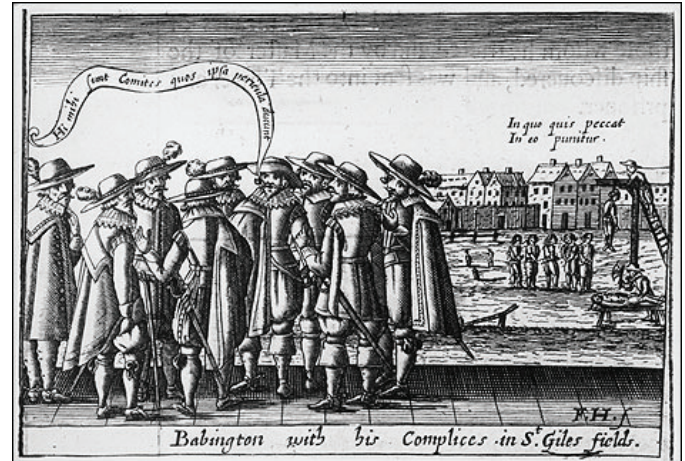 Hi mihi sunt Comites quos ipsa pericula ducunt
In quo quis peccat
In eo punitur.
F.H. f
Babington with his Complices in St. Giles fields.